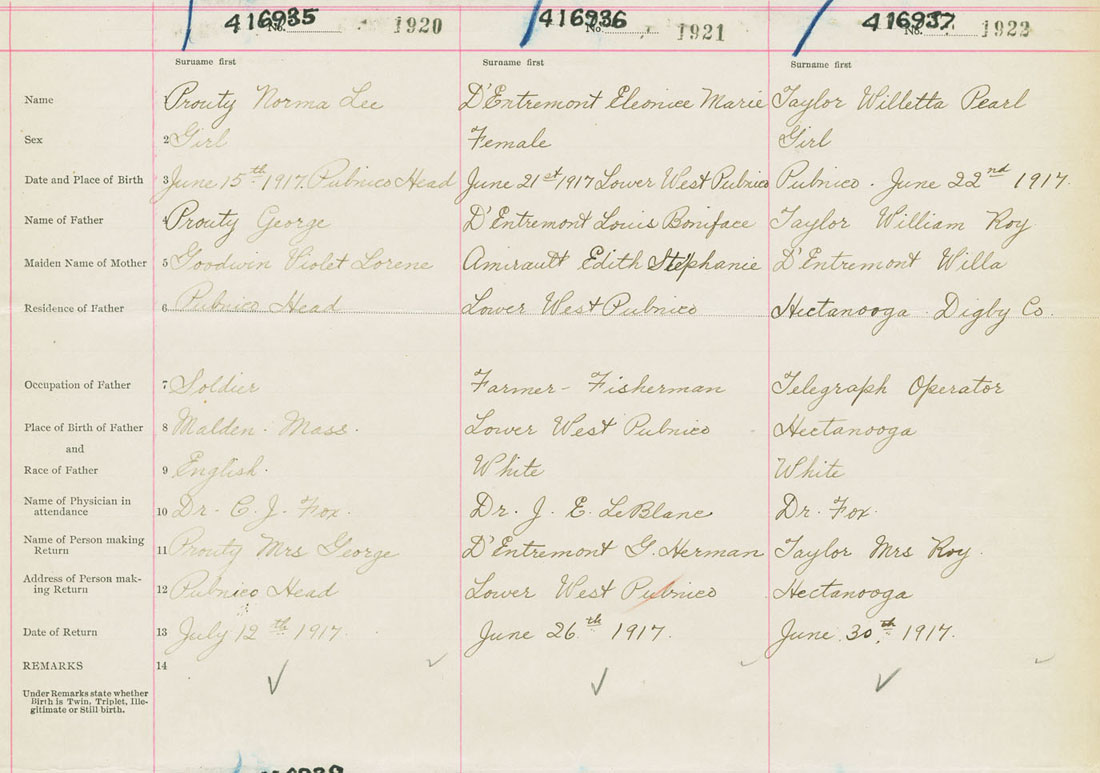 416935 No. 1920 416936 No. 1921 416937 No. 1922
Surname first Surname first Surname first
Name Prouty Norma Lee D'Entremont Eleonice Marie Taylor Willetta Pearl
Sex 2 Girl Female Girl
Date and Place of Birth 3 June 15th 1917. Pubnico Head June 21st 1917 Lower West Pubnico Pubnico. June 22nd 1917.
Name of Father 4 Prouty George D'Entremont Louis Boniface Taylor William Roy
Maiden Name of Mother 5 Goodwin Violet Lorene Amirault Edith Stéphanie D'Entremont Willa
Residence of Father 6 Pubnico Head Lower West Pubnico Hectanooga Digby Co.
Occupation of Father 7 Soldier Farmer - Fisherman Telegraph Operator
Place of Birth of Father 8 Malden. Mass. Lower West Pubnico Hectanooga
and
Race of Father 9 English. White White
Name of Physician in
attendance 10 Dr. C. J. Fox. Dr. J. E. LeBlanc Dr. Fox.
Name of Person making
Return 11 Prouty Mrs George D'Entremont G. Herman Taylor Mrs Roy.
Address of Person mak-
ing Return 12 Pubnico Head Lower West Pubnico Hectanooga
Date of Return 13 July 12th 1917. June 26th 1917. June 30th 1917.
REMARKS 14
Under Remarks state whether
Birth is Twin, Triplet, Ille-
gitimate or Still birth.